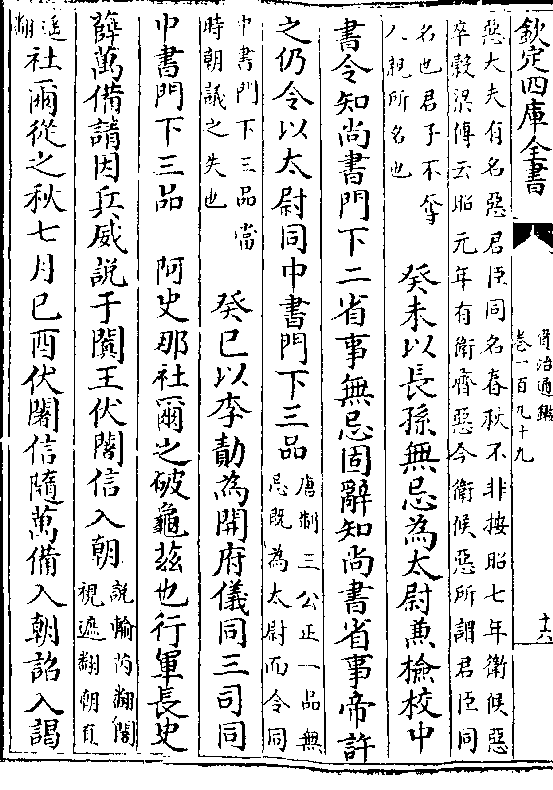 欽定四庫全書
資治通鑑
卷一百九十九
十六
惡大夫有名惡君臣同名春秋不非按昭七年衛候惡
卒穀梁傳云昭元年有衛齊惡今衛候惡所謂君臣同
名也君子不奪
人親所名也
癸未以長孫無忌為太尉兼檢校中
書令知尚書門下二省事無忌固辭知尚書省事帝許
之仍令以太尉同中書門下三品
唐制三公正一品無
忌既為太尉而令同
中書門下三品當
時朝議之失也
癸巳以李勣為開府儀同三司同
中書門下三品
阿史那社爾之破龜茲也行軍長史
薛萬備請因兵威説于闐王伏闍信入朝
説輸芮翻闍
視遮翻朝直
遥
翻
社爾從之秋七月己酉伏闍信隨萬備入朝詔入謁